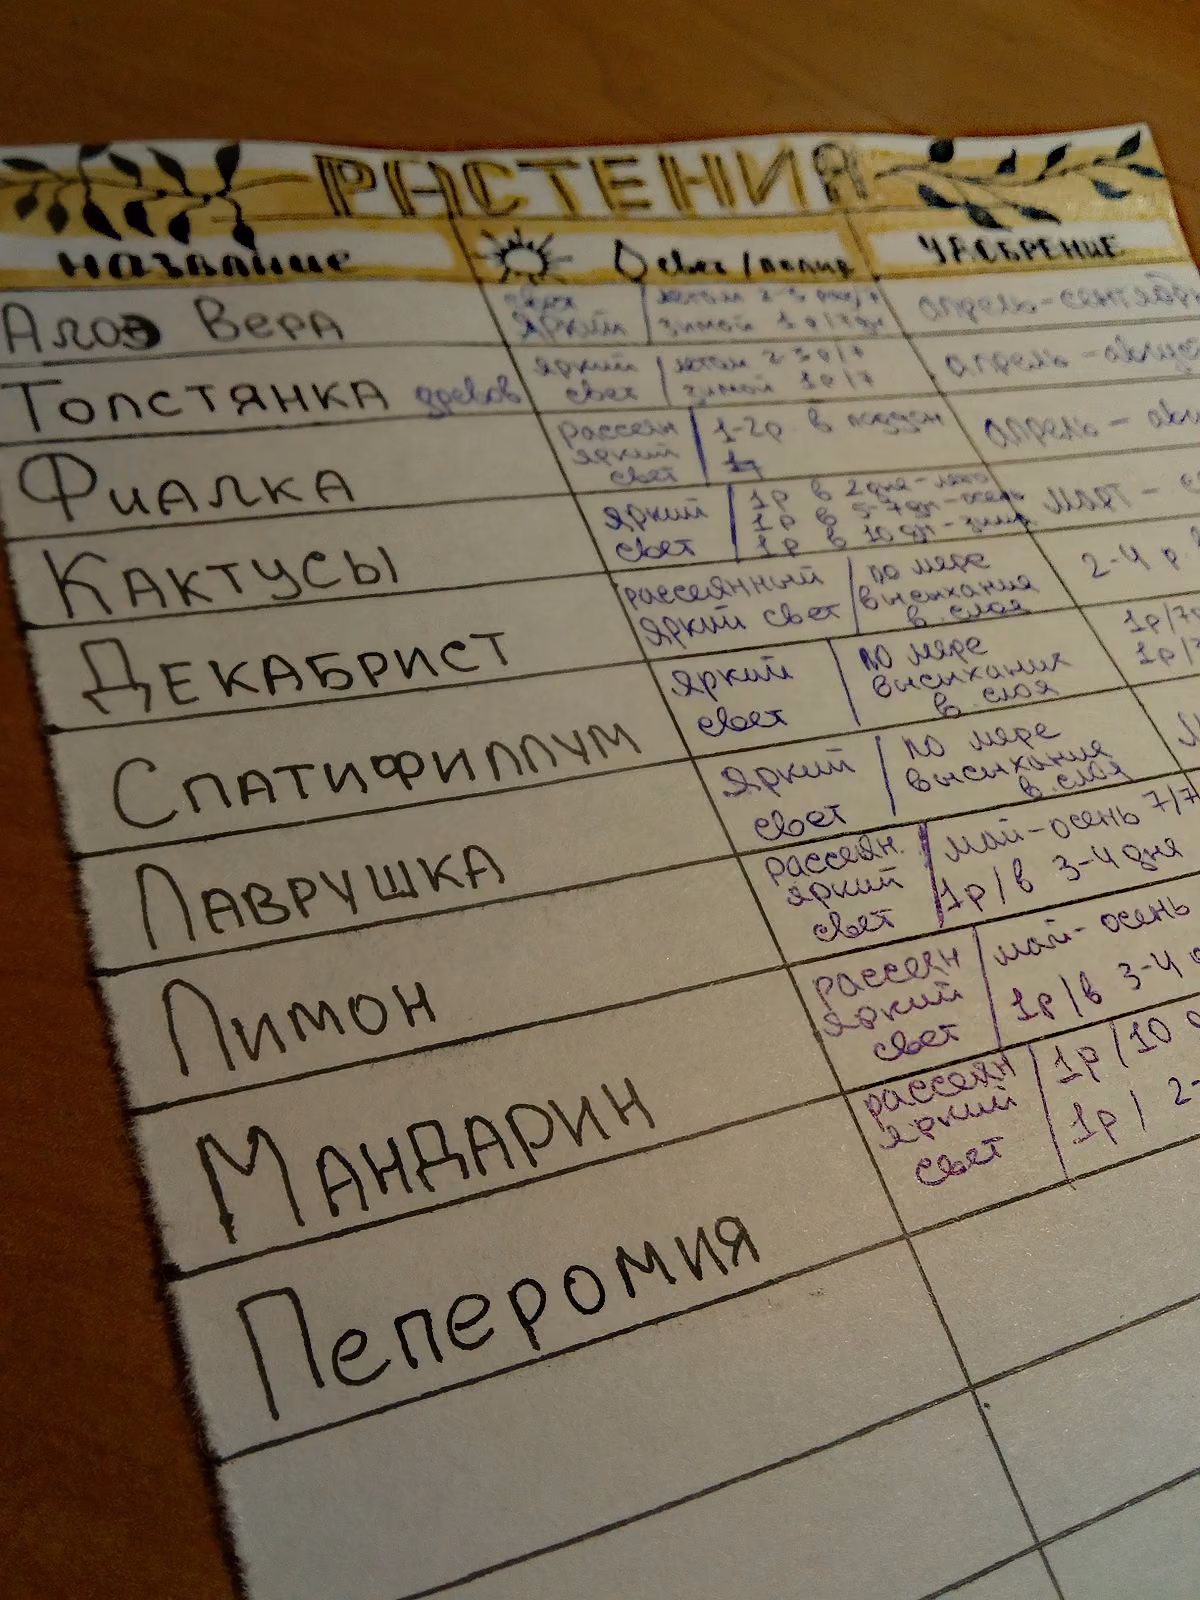 РАСТЕНИЯ
НАЗВАНИЕ свет/полив УДОБРЕНИЕ
Алоэ Вера
яркий
летом 2-3
зимой 1р/7дн
апрель-сентябр
Толстянка древов
яркий
свет
летом 2-3р/7
зимой 1р/7
апрель-август
Фиалка
рассеян
яркий
свет
1-2р. в поддон
апрель-авг
Кактусы
яркий
свет
1р в 2дня-лето
1р в 5-7дн-осень
1р в 10дн-зима
март-
Декабрист
рассеянный
яркий свет
по мере
высыхания
в. слоя
2-4 р.
Спатифиллум
яркий
свет
по мере
высыхания
в. слоя
1р/7
1р/
Лаврушка
яркий
свет
по мере
высыхания
в. слоя
Лимон
рассеян.
яркий
свет
май-осень 7/7
1р/в 3-4 дня
Мандарин
рассеян
яркий
свет
май-осень
1р/в 3-4
Пеперомия
рассеян
яркий
свет
1р/10
1р/ 2-